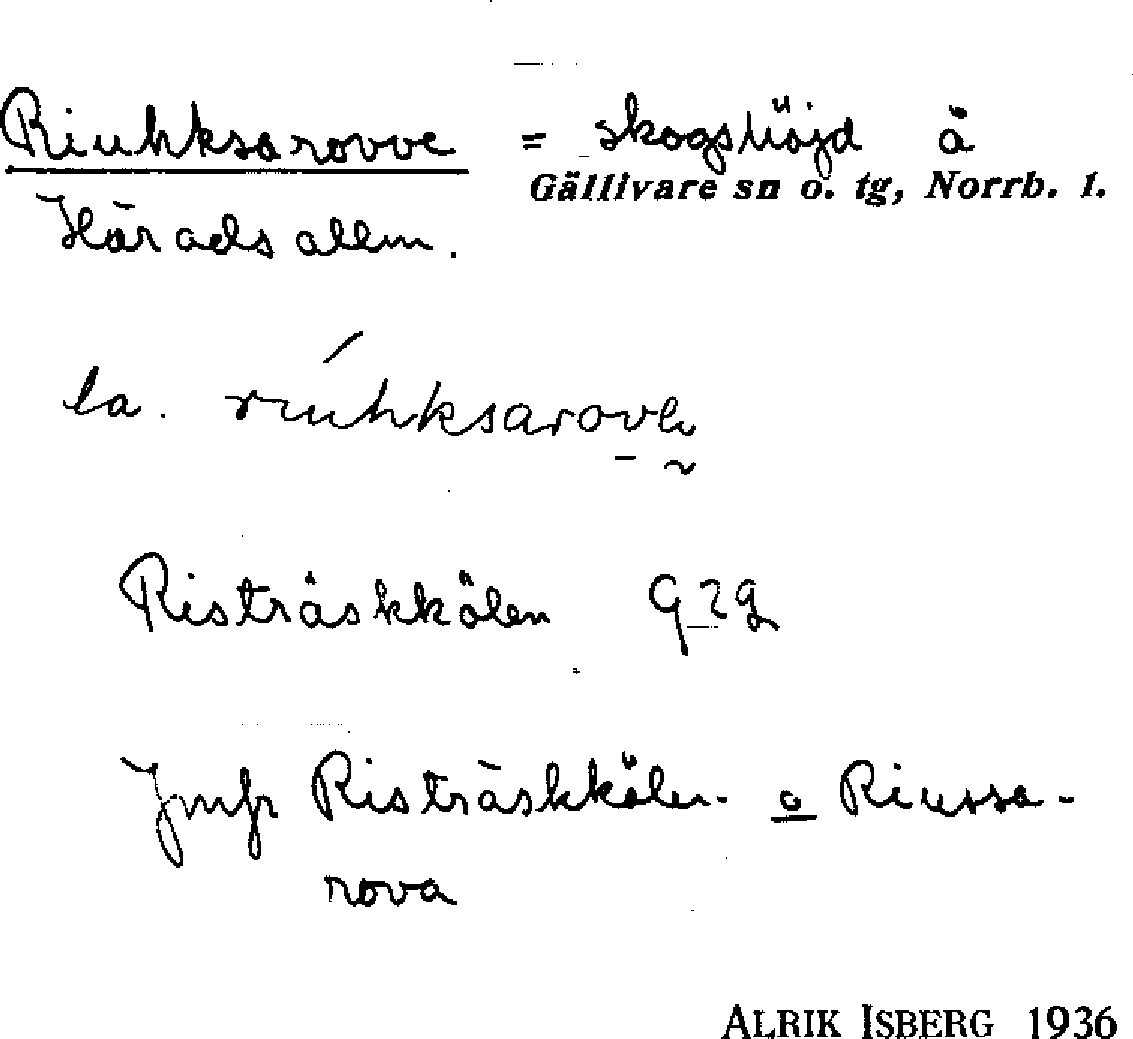 Riuhksarovve = skogshöjd å
Gällivare sn o. tg, Norrb. l.
Häradsallm.
la. riuhksarove
Risträskkölen G2g
Jmfr Risträskkölen o Riussa-
rova
ALRIK ISBERG 1936